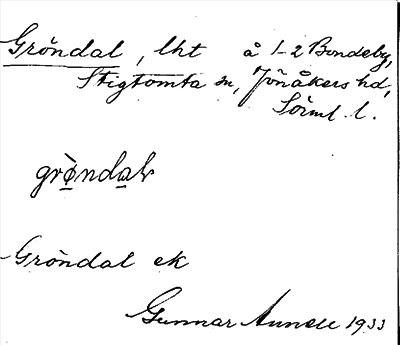 Gröndal, lht å 1-2 Bondeby,
Stigtomta sn, Jönåkers hd,
Sörml. l.
grö̀ndal
Gröndal ek
Gunnar 1933